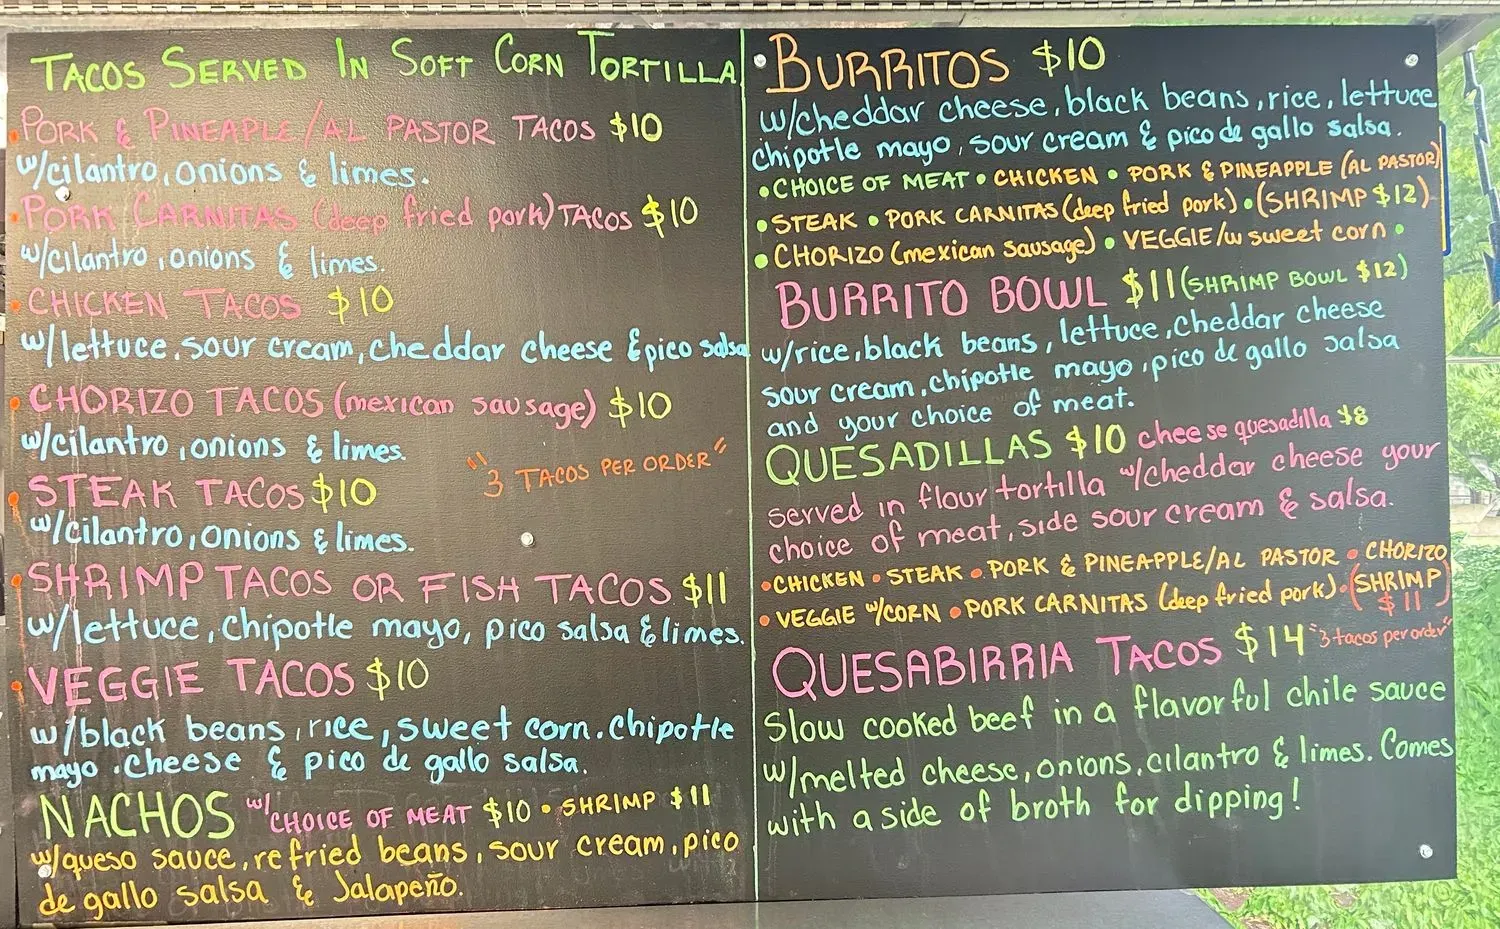 TACOS SERVED IN SOFT CORN TORTILLA
• PORK & PINEAPPLE/AL PASTOR TACOS $10
w/cilantro, onions & limes.
• PORK CARNITAS (deep fried pork) TACOS $10
w/cilantro, onions & limes.
• CHICKEN TACOS $10
w/lettuce, sour cream, cheddar cheese & pico salsa
• CHORIZO TACOS (mexican sausage) $10
w/cilantro, onions & limes.
"3 TACOS PER ORDER"
• STEAK TACOS $10
w/cilantro, onions & limes.
• SHRIMP TACOS OR FISH TACOS $11
w/lettuce, chipotle mayo, pico salsa & limes.
• VEGGIE TACOS $10
w/black beans, rice, sweet corn. Chipotle
mayo. Cheese & pico de gallo salsa.
NACHOS w/CHOICE OF MEAT $10 • SHRIMP $11
w/queso sauce, refried beans, sour cream, pico
de gallo salsa & Jalapeño.
• BURRITOS $10
w/cheddar cheese, black beans, rice, lettuce
chipotle mayo, sour cream & pico de gallo salsa.
• CHOICE OF MEAT • CHICKEN • PORK & PINEAPPLE (AL PASTOR)
• STEAK • PORK CARNITAS (deep fried pork) • (SHRIMP $12)
• CHORIZO (mexican sausage) • VEGGIE/w sweet corn •
BURRITO BOWL $11 (SHRIMP BOWL $12)
w/rice, black beans, lettuce, cheddar cheese
sour cream, chipotle mayo, pico de gallo salsa
and your choice of meat.
QUESADILLAS $10 cheese quesadilla $8
served in flour tortilla w/cheddar cheese your
choice of meat, side sour cream & salsa.
• CHICKEN • STEAK • PORK & PINEAPPLE/AL PASTOR • CHORIZO
• VEGGIE w/CORN • PORK CARNITAS (deep fried pork) • (SHRIMP)
$11
QUESABIRRIA TACOS $14 "3 tacos per order"
Slow cooked beef in a flavorful chile sauce
w/melted cheese, onions, cilantro & limes. Comes
with a side of broth for dipping!